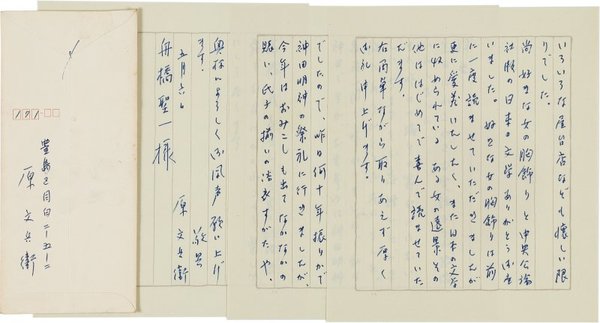 いろいろな屋台店なども懐しい限
りでした。
尚好きな女の胸飾りと中央公論
社版の日本の文学ありがとう御座
いました。好きな女の胸飾りは前
に一度読ませていただきましたが
更に愛着いたしたく、また日本の文学
に収められている ある女の遠景その
他ははじめてで喜んで読ませていた
だきます。
右簡単ながら取りあえず厚く
御礼申上げます。
でしたので、昨日何十年振りかで
神田明神の祭礼に行きましたが、
今年はおみこしも出てなかなかの
賑い、氏子の揃いの浴衣すがたや、
奥様によろしく御鳳声願い上げ
ます。
敬具
五月六日
原文兵衛
舟橋聖一様
171
豊島区目白二ー五ー二
原 文兵衛